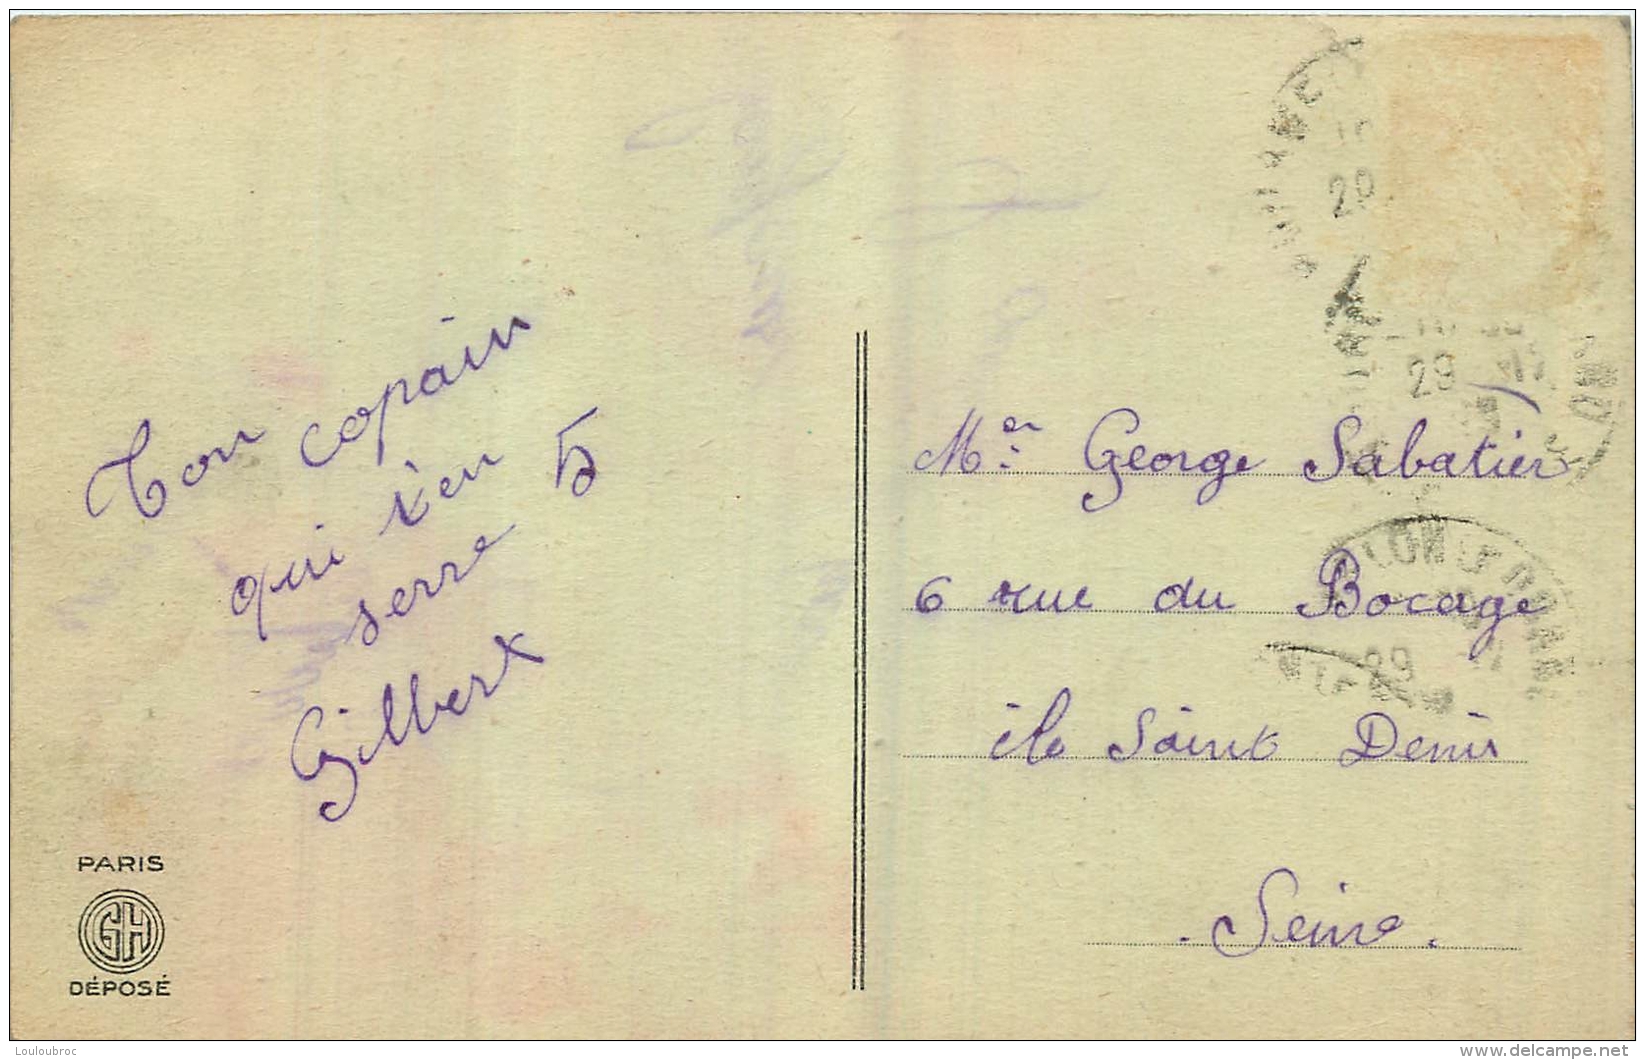 Ton copain
qui t'en
serre 5
Gilbert
PARIS
GH
DÉPOSÉ
Mer George Sabatier
6 rue du Bocage
île Saint Denis
. Seine .
20
29
29
Louloubroc
www.delcampe.net